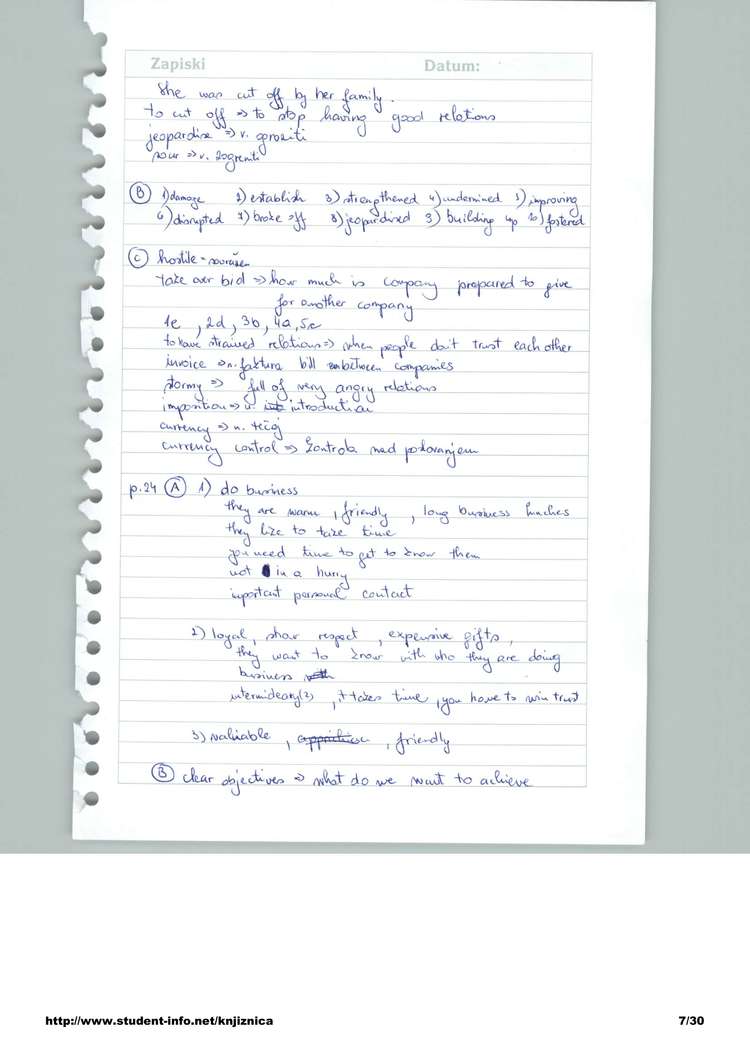 Zapiski Datum:
She was cut off by her family.
to cut off => to stop having good relations
jeopardise => v. ogroziti
sour => v. zagreniti
(B) 1) damage 2) establish 3) strengthened 4) undermined 5) improving
6) disrupted 7) broke off 8) jeopardised 9) building up 10) fostered
(C) hostile - sovražen
take over bid => how much is company prepared to give
for another company
1e, 2d, 3b, 4a, 5c
to have strained relations => when people don't trust each other
invoice => n. faktura bill between companies
stormy => full of very angry relations
imposition => n. introduction
currency => n. tečaj
currency control => kontrola nad poslovanjem
p.24 (A) 1) do business
they are warm, friendly, long business lunches
they like to take time
you need time to get to know them
not in a hurry
important personal contact
2) loyal, show respect, expensive gifts,
they want to know with who they are doing
business
intermideary(2), it takes time, you have to win trust
3) valiable, friendly
(B) clear objectives => what do we want to achieve
http://www.student-info.net/knjiznica 7/30